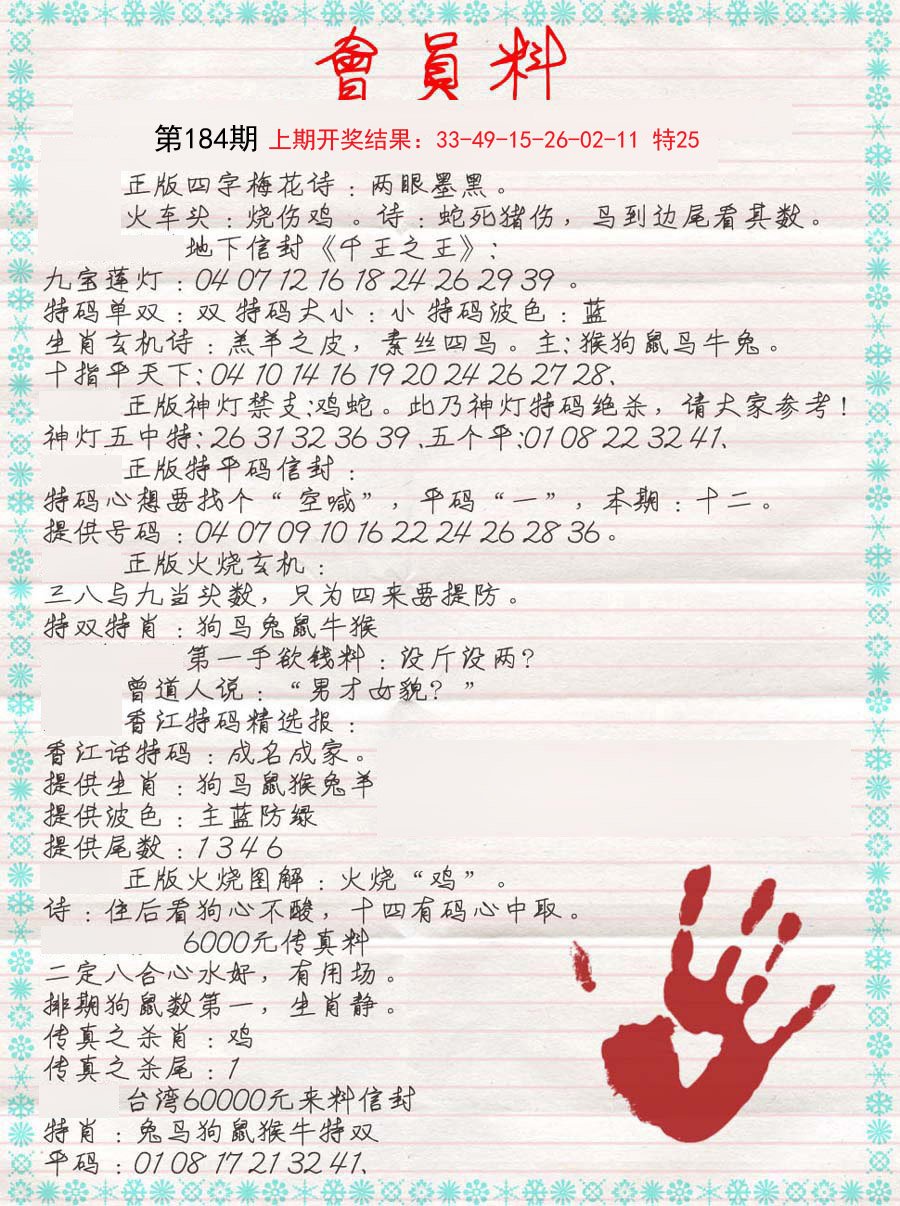 會員料
第184期 上期开奖结果：33-49-15-26-02-11 特25
正版四字梅花诗：两眼墨黑。
火车头：烧伤鸡。诗：蛇死猪伤，马到边尾看其数。
地下信封《千王之王》：
九宝莲灯：04 07 12 16 18 24 26 29 39 。
特码单双：双 特码大小：小 特码波色：蓝
生肖玄机诗：羔羊之皮，素丝四马。主：猴狗鼠马牛兔。
十指平天下：04 10 14 16 19 20 24 26 27 28、
正版神灯禁支：鸡蛇。此乃神灯特码绝杀，请大家参考！
神灯五中特：26 31 32 36 39 、五个平：01 08 22 32 41、
正版特平码信封：
特码心想要找个“空喊”，平码“一”，本期：十二。
提供号码：04 07 09 10 16 22 24 26 28 36。
正版火烧玄机：
三八与九当头数，只为四来要提防。
特双特肖：狗马兔鼠牛猴
第一手欲钱料：没斤没两？
曾道人说：“男才女貌？”
香江特码精选报：
香江话特码：成名成家。
提供生肖：狗马鼠猴兔羊
提供波色：主蓝防绿
提供尾数：1 3 4 6
正版火烧图解：火烧“鸡”。
诗：住后看狗心不酸，十四有码心中取。
6000元传真料
二定八合心水好，有用场。
排期狗鼠数第一，生肖静。
传真之杀肖：鸡
传真之杀尾：1
台湾60000元来料信封
特肖：兔马狗鼠猴牛特双
平码：01 08 17 21 32 41、